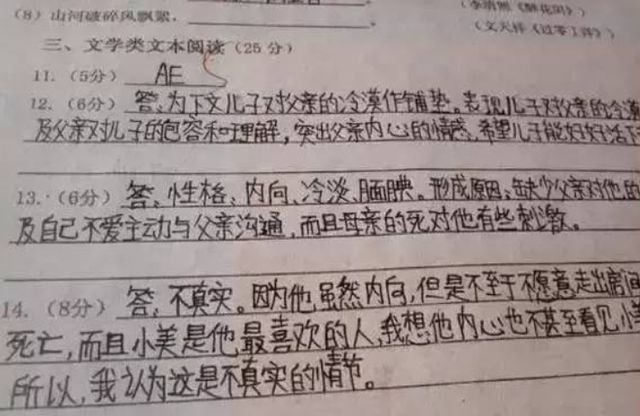 (李清照《醉花阴》)
(8)山河破碎风飘絮,
(文天祥《过零丁洋》)
三、文学类文本阅读(25分)
11.(5分) AE
12.(6分) 答:为下文儿子对父亲的冷漠作铺垫。表现儿子对父亲的冷漠
及父亲对儿子的包容和理解,突出父亲内心的情感,希望儿子能好好活下
13.(6分) 答:性格:内向、冷淡、腼腆。形成原因:缺少父亲对他的
及自己不爱主动与父亲沟通,而且母亲的死对他有些刺激。
14.(8分) 答:不真实。因为他虽然内向,但是不至于不愿意走出房间
死亡,而且小美是他最喜欢的人,我想他内心也不甚至看见小美
所以,我认为这是不真实的情节。